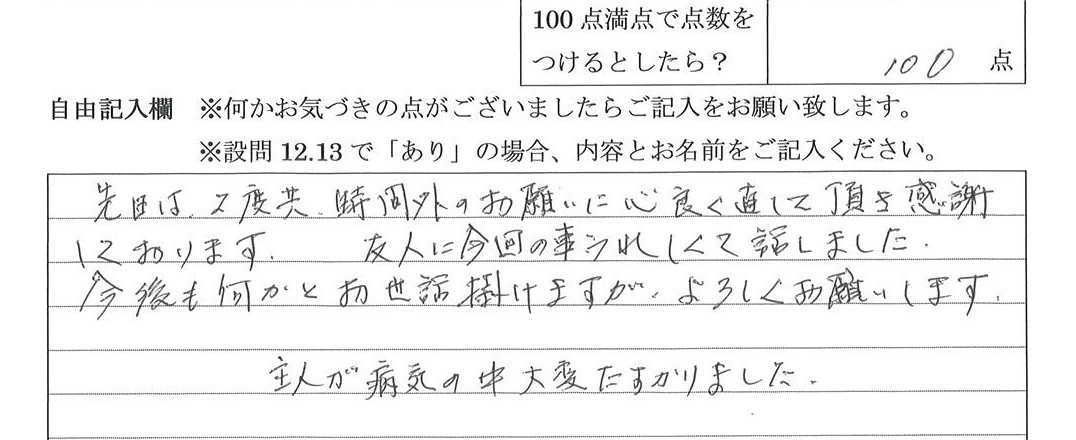 100点満点で点数を
つけるとしたら？
100 点
自由記入欄 ※何かお気づきの点がございましたらご記入をお願い致します。
※設問12.13で「あり」の場合、内容とお名前をご記入ください。
先日は、2度共、時間外のお願いに心良く直して頂き感謝
しております。 友人に今回の事うれしくて話しました。
今後も何かとお世話掛けますが、よろしくお願いします。
主人が病気の中大変たすかりました。